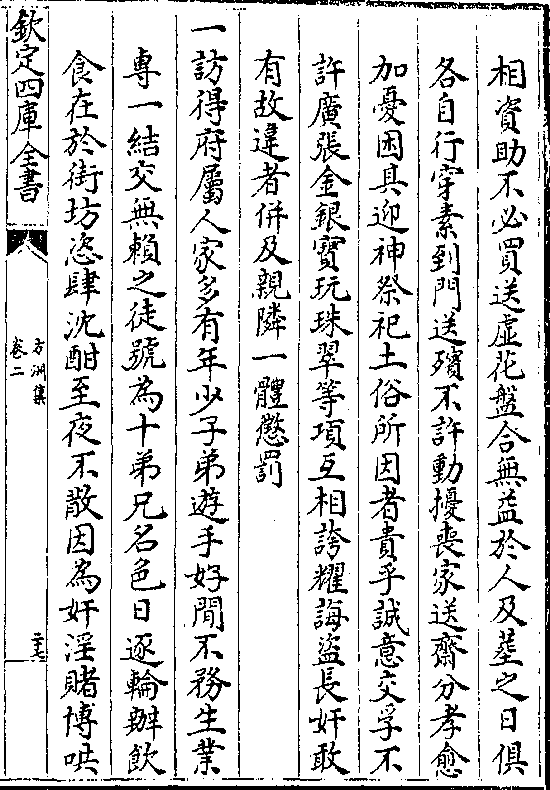 相資助不必買送虛花盤合無益於人及塟之日俱
各自行穿素到門送殯不許動擾喪家送齋分孝愈
加憂困具迎神祭祀土俗所因者貴乎誠意交孚不
許廣張金銀寶玩珠翠等項互相誇耀誨盜長奸敢
有故違者併及親隣一體懲罰
一訪得府屬人家多有年少子弟遊手好閒不務生業
專一結交無賴之徒號為十弟兄名色日逐輪辦飲
食在於街坊恣肆沈酣至夜不散因為奸淫賭博哄
欽定四庫全書
方洲集
卷二